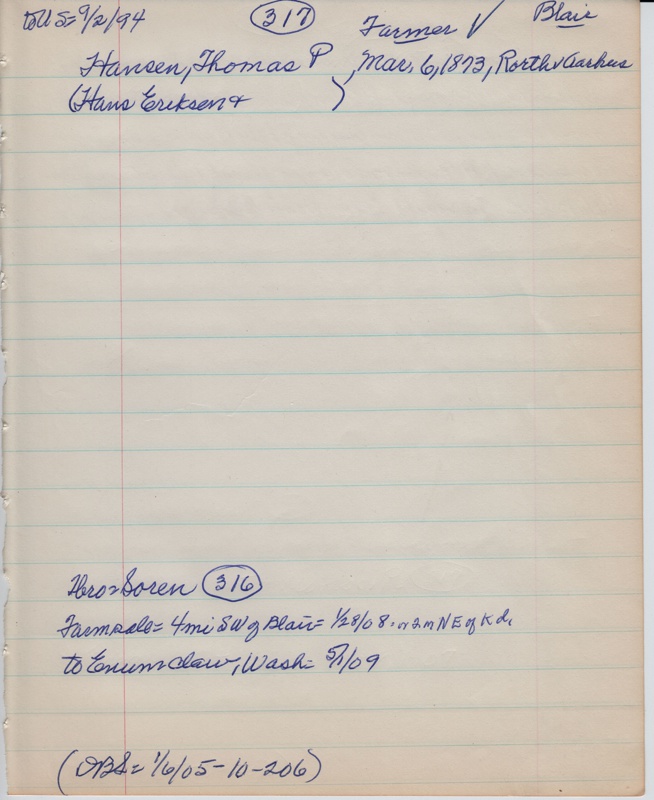 to US= 9/2/94 317 Farmer ✓ Blair
Hansen, Thomas P , Mar. 6, 1873, Rorth v Aarhus
(Hans Eriksen + )
Bro= Soren 316
Farm sale= 4 mi SW of Blair= 1/28/08. or 2 m NE of Kd.
to Enumclaw, Wash= 5/1/09
(OBS= 1/6/05-10-206)